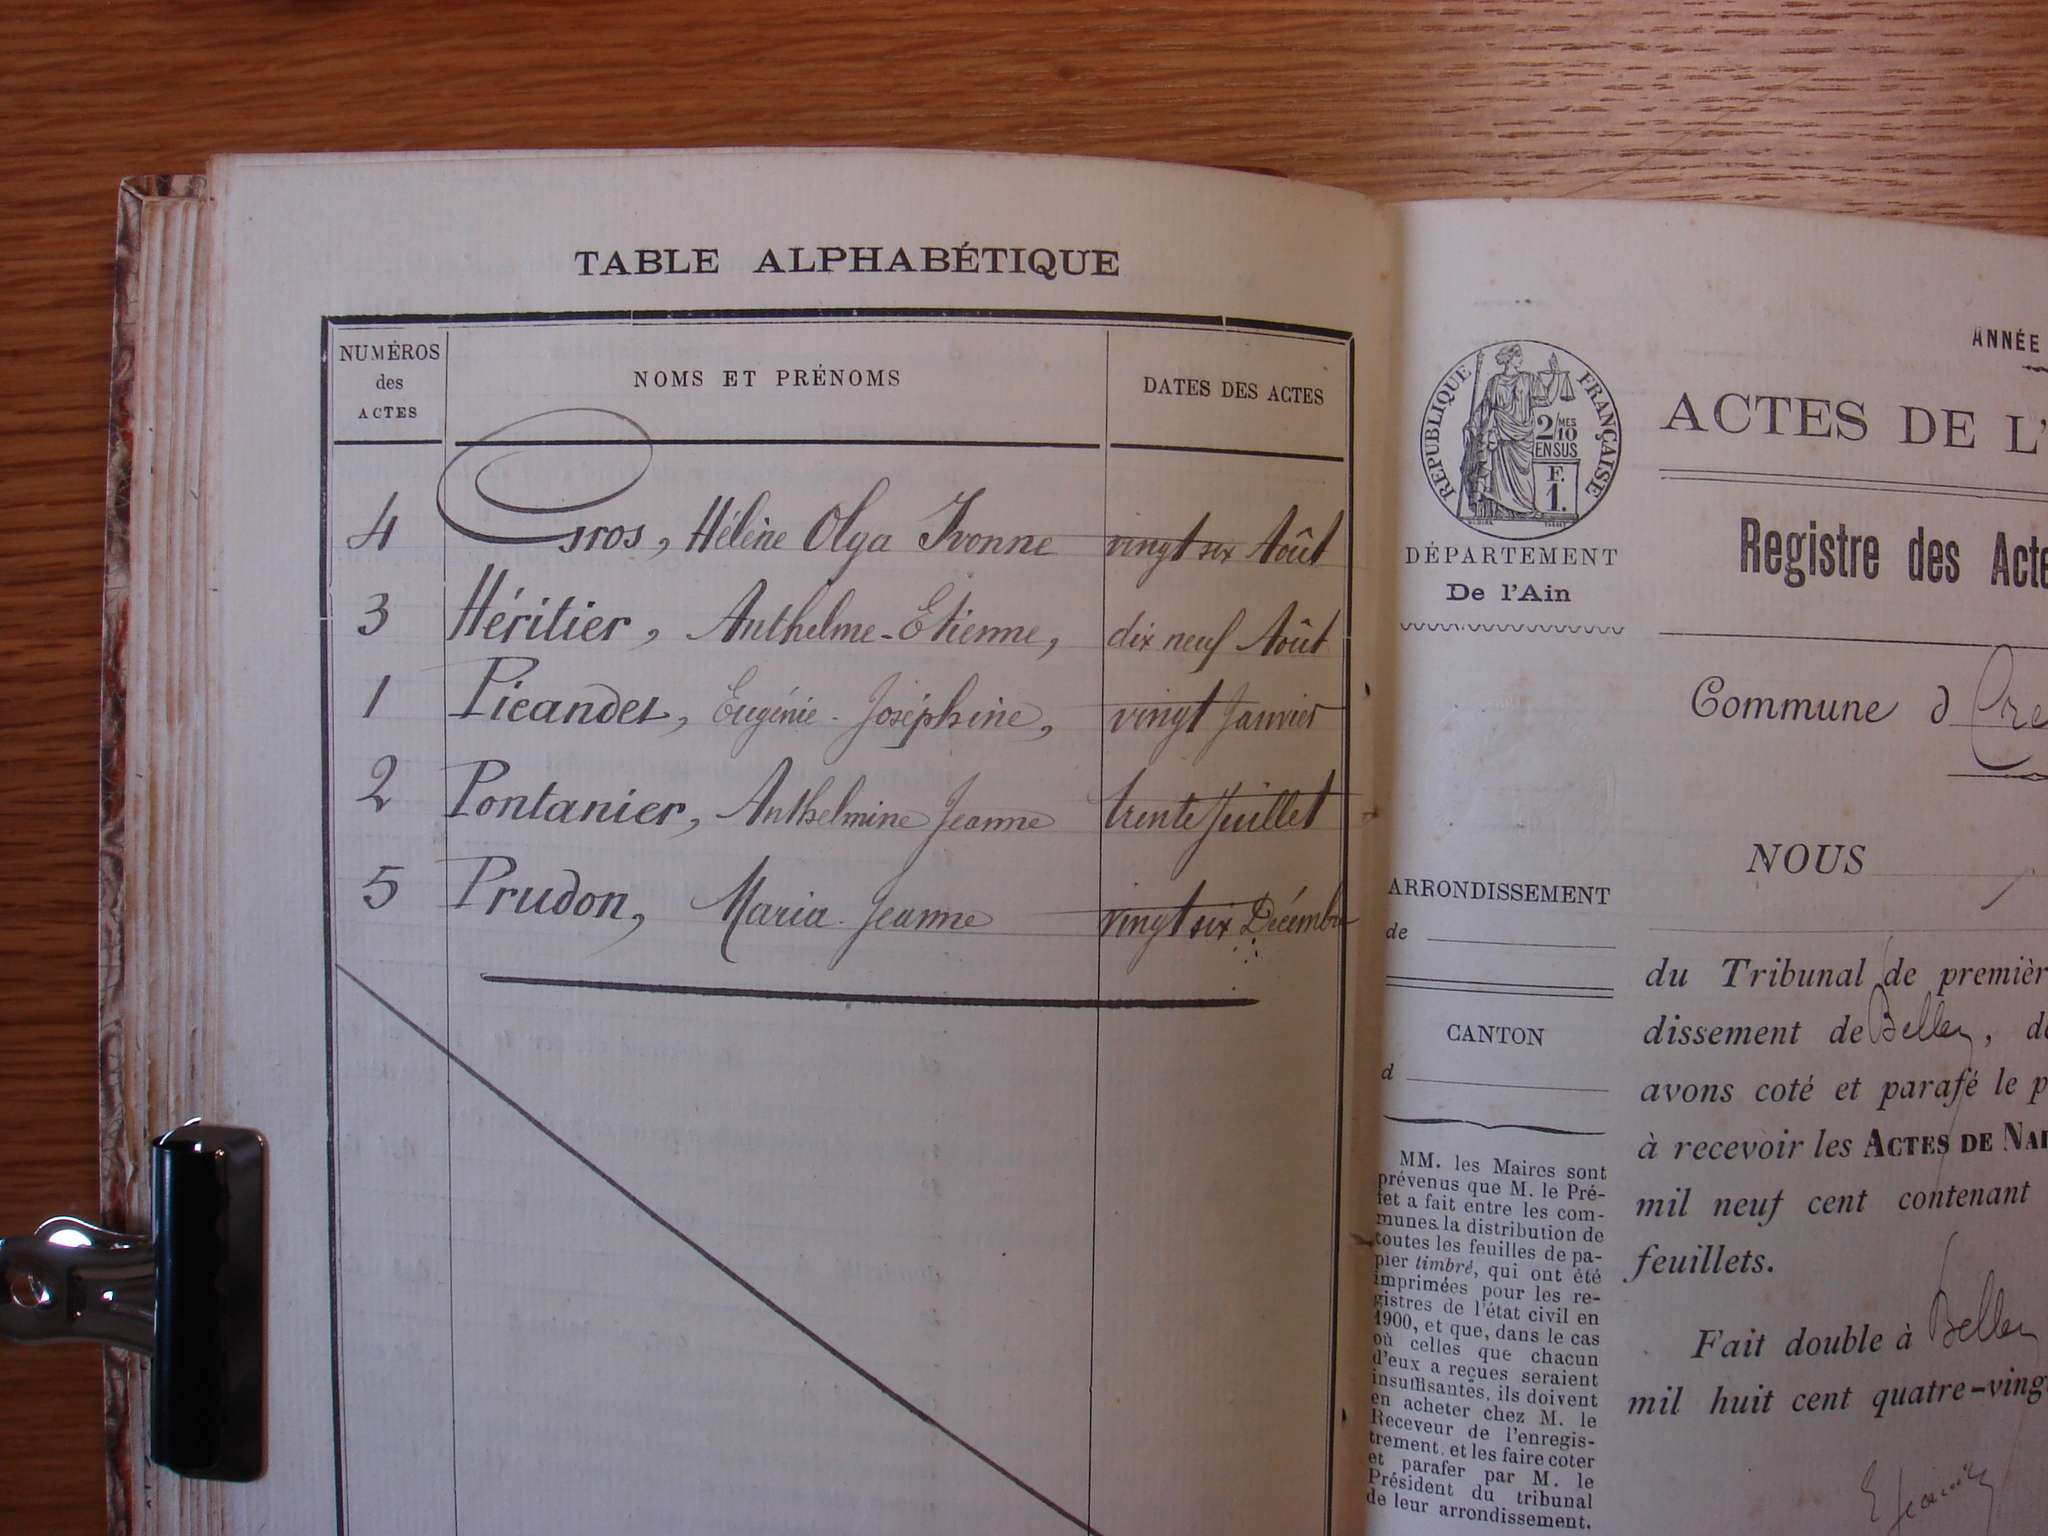 TABLE ALPHABÉTIQUE
NUMÉROS des ACTES
NOMS ET PRÉNOMS
DATES DES ACTES
4 Gros, Hélène Olga Yvonne vingt six Août
3 Héritier, Anthelme-Etienne, dix neuf Août
1 Picandet, Eugénie-Joséphine, vingt Janvier
2 Pontanier, Anthelmine Jeanne trente Juillet
5 Prudon, Maria-Jeanne vingt six Décembre
ANNÉE
RÉPUBLIQUE FRANÇAISE
2/10 MES
EN SUS
F.
1.
ACTES DE L'
DÉPARTEMENT
De l'Ain
Registre des Acte
Commune d Cre
NOUS
ARRONDISSEMENT
de
CANTON
d
du Tribunal de premièr
dissement de Belley, d
avons coté et parafé le p
à recevoir les ACTES DE NAI
mil neuf cent contenant
feuillets.
Fait double à Belley
mil huit cent quatre-ving
MM. les Maires sont
prévenus que M. le Pré-
fet a fait entre les com-
munes la distribution de
toutes les feuilles de pa-
pier timbré, qui ont été
imprimées pour les re-
gistres de l'état civil en
1900, et que, dans le cas
où celles que chacun
d'eux a reçues seraient
insuffisantes, ils doivent
en acheter chez M. le
Receveur de l'enregis-
trement, et les faire coter
et parafer par M. le
Président du tribunal
de leur arrondissement.